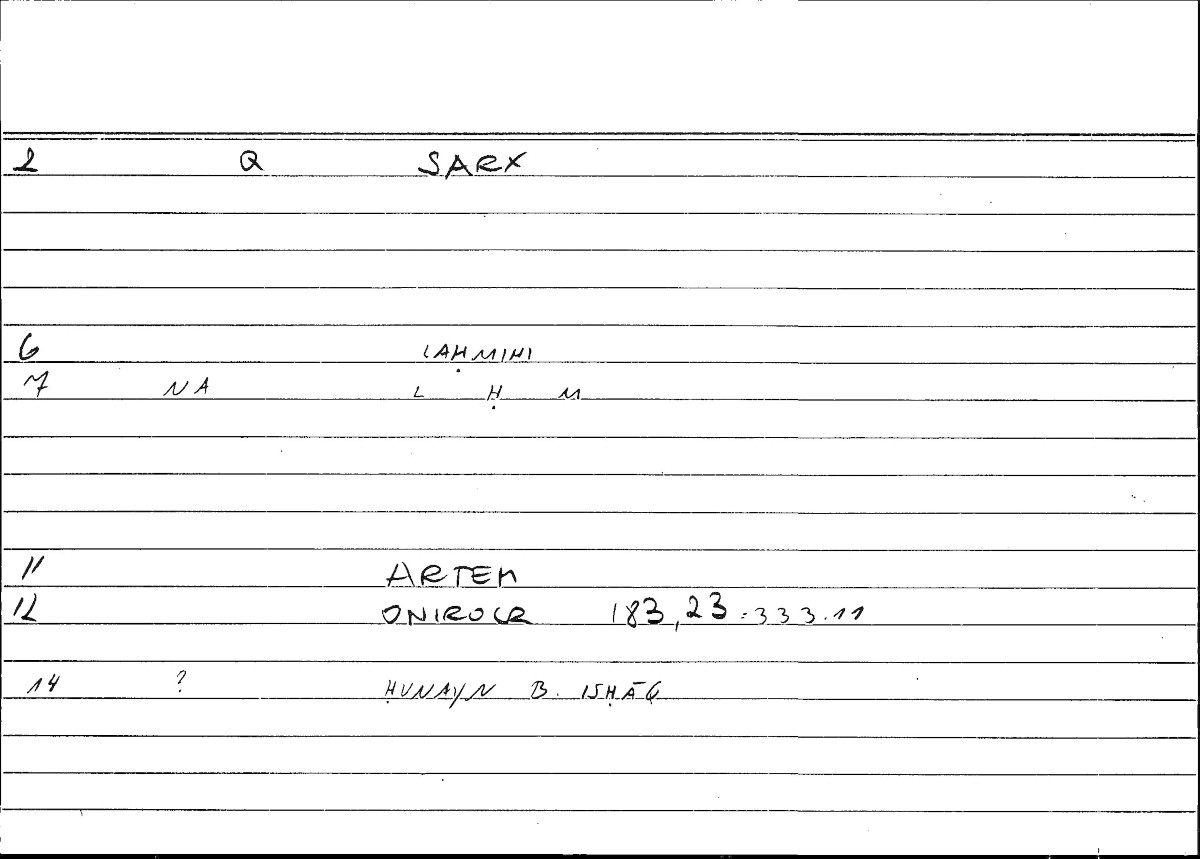 2 Q SARX
6 LAḤMIHI
7 NA L Ḥ M
11 ARTEM
12 ONIROCR 183,23 = 333.11
14 ? ḤUNAYN B. ISḤĀQ